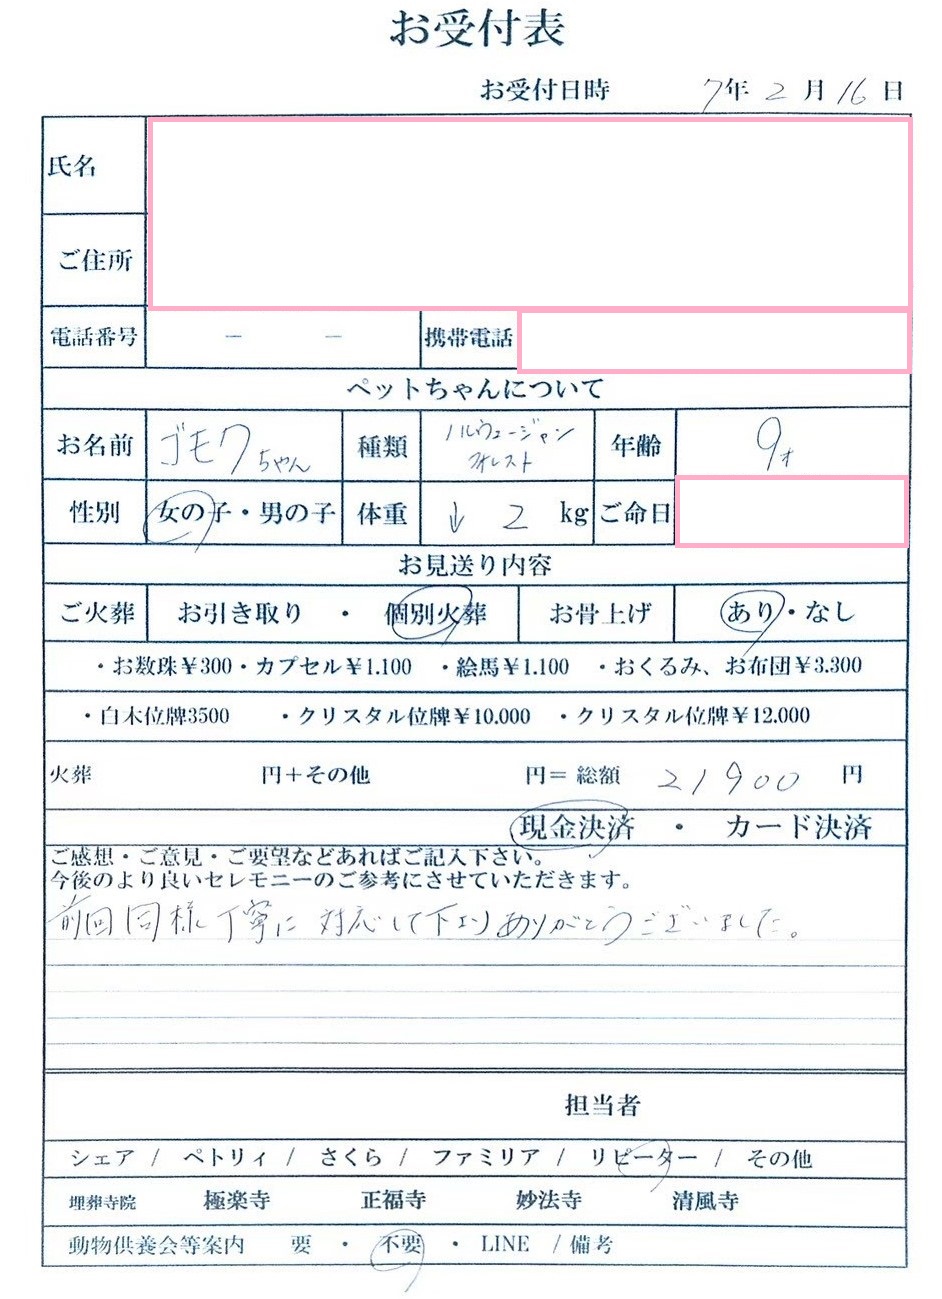 お受付表
お受付日時 7年 2月 16日
氏名
ご住所
電話番号 － － 携帯電話
ペットちゃんについて
お名前 ゴモクちゃん 種類 ノルウェージャン
フォレスト 年齢 9才
性別 女の子・男の子 体重 ↓ 2 kg ご命日
お見送り内容
ご火葬 お引き取り ・ 個別火葬 お骨上げ あり・なし
・お数珠¥300・カプセル¥1.100 ・絵馬¥1.100 ・おくるみ、お布団¥3.300
・白木位牌3500 ・クリスタル位牌¥10.000 ・クリスタル位牌¥12.000
火葬 円＋その他 円＝ 総額 21900 円
現金決済 ・ カード決済
ご感想・ご意見・ご要望などあればご記入下さい。
今後のより良いセレモニーのご参考にさせていただきます。
前回同様丁寧に対応して下さりありがとうございました。
担当者
シェア / ペトリィ / さくら / ファミリア / リピーター / その他
埋葬寺院 極楽寺 正福寺 妙法寺 清風寺
動物供養会等案内 要 ・ 不要 ・ LINE / 備考